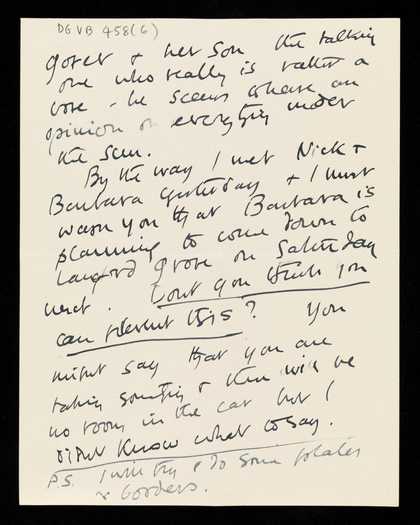 DG VB 458(6)
& her son the talking
one who really is rather a
bore - he seems to have an
opinion on everything under
the sun.
By the way I met Nick &
Barbara yesterday & I must
warn you that Barbara is
planning to come down to
Langford Grove on Saturday
next. Dont you think you
can prevent this? You
might say that you are
taking something & there will be
no room in the car but I
didnt know what to say.
P.S. I will try & do some plates
& borders.